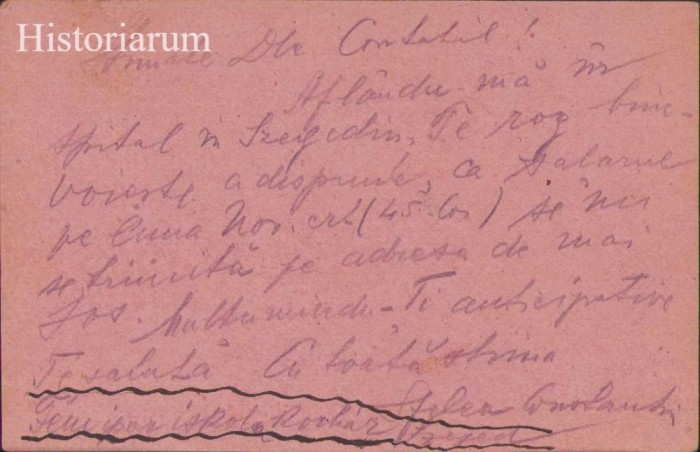 Historiarum
Stimate Dle Contabil!
Aflându mă în
spital în Szegedin, Te rog bine-
voiește a dispune, ca salarul
pe luna Nov. crt. (45 Cor) se mi
se trimită pe adresa de mai
jos. Multumindu-Ti anticipative
Te salută Cu toată stima
Stelea Constantin
Fémipar iskola Kórház Szeged